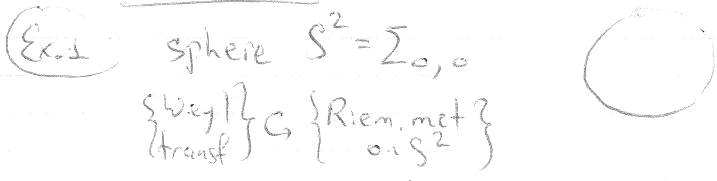 Ex.1 sphere S² = Σ₀,₀
{Weyl transf} ↻ {Riem. met on S²}